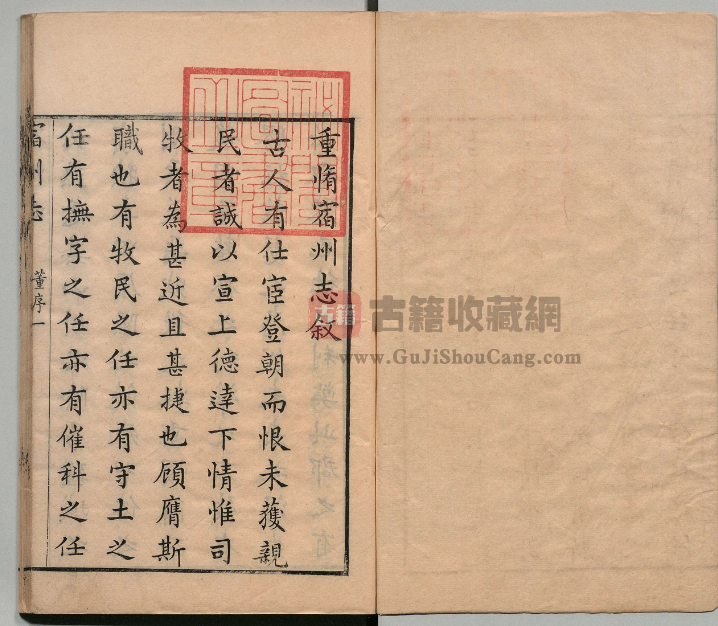 重脩宿州志敘
古人有仕宦登朝而恨未獲親
民者誠以宣上德達下情惟司
牧者為甚近且甚捷也顧膺斯
職也有牧民之任亦有守土之
任有撫字之任亦有催科之任
宿州志
董序一
古籍
古籍收藏網
www.GuJiShouCang.com